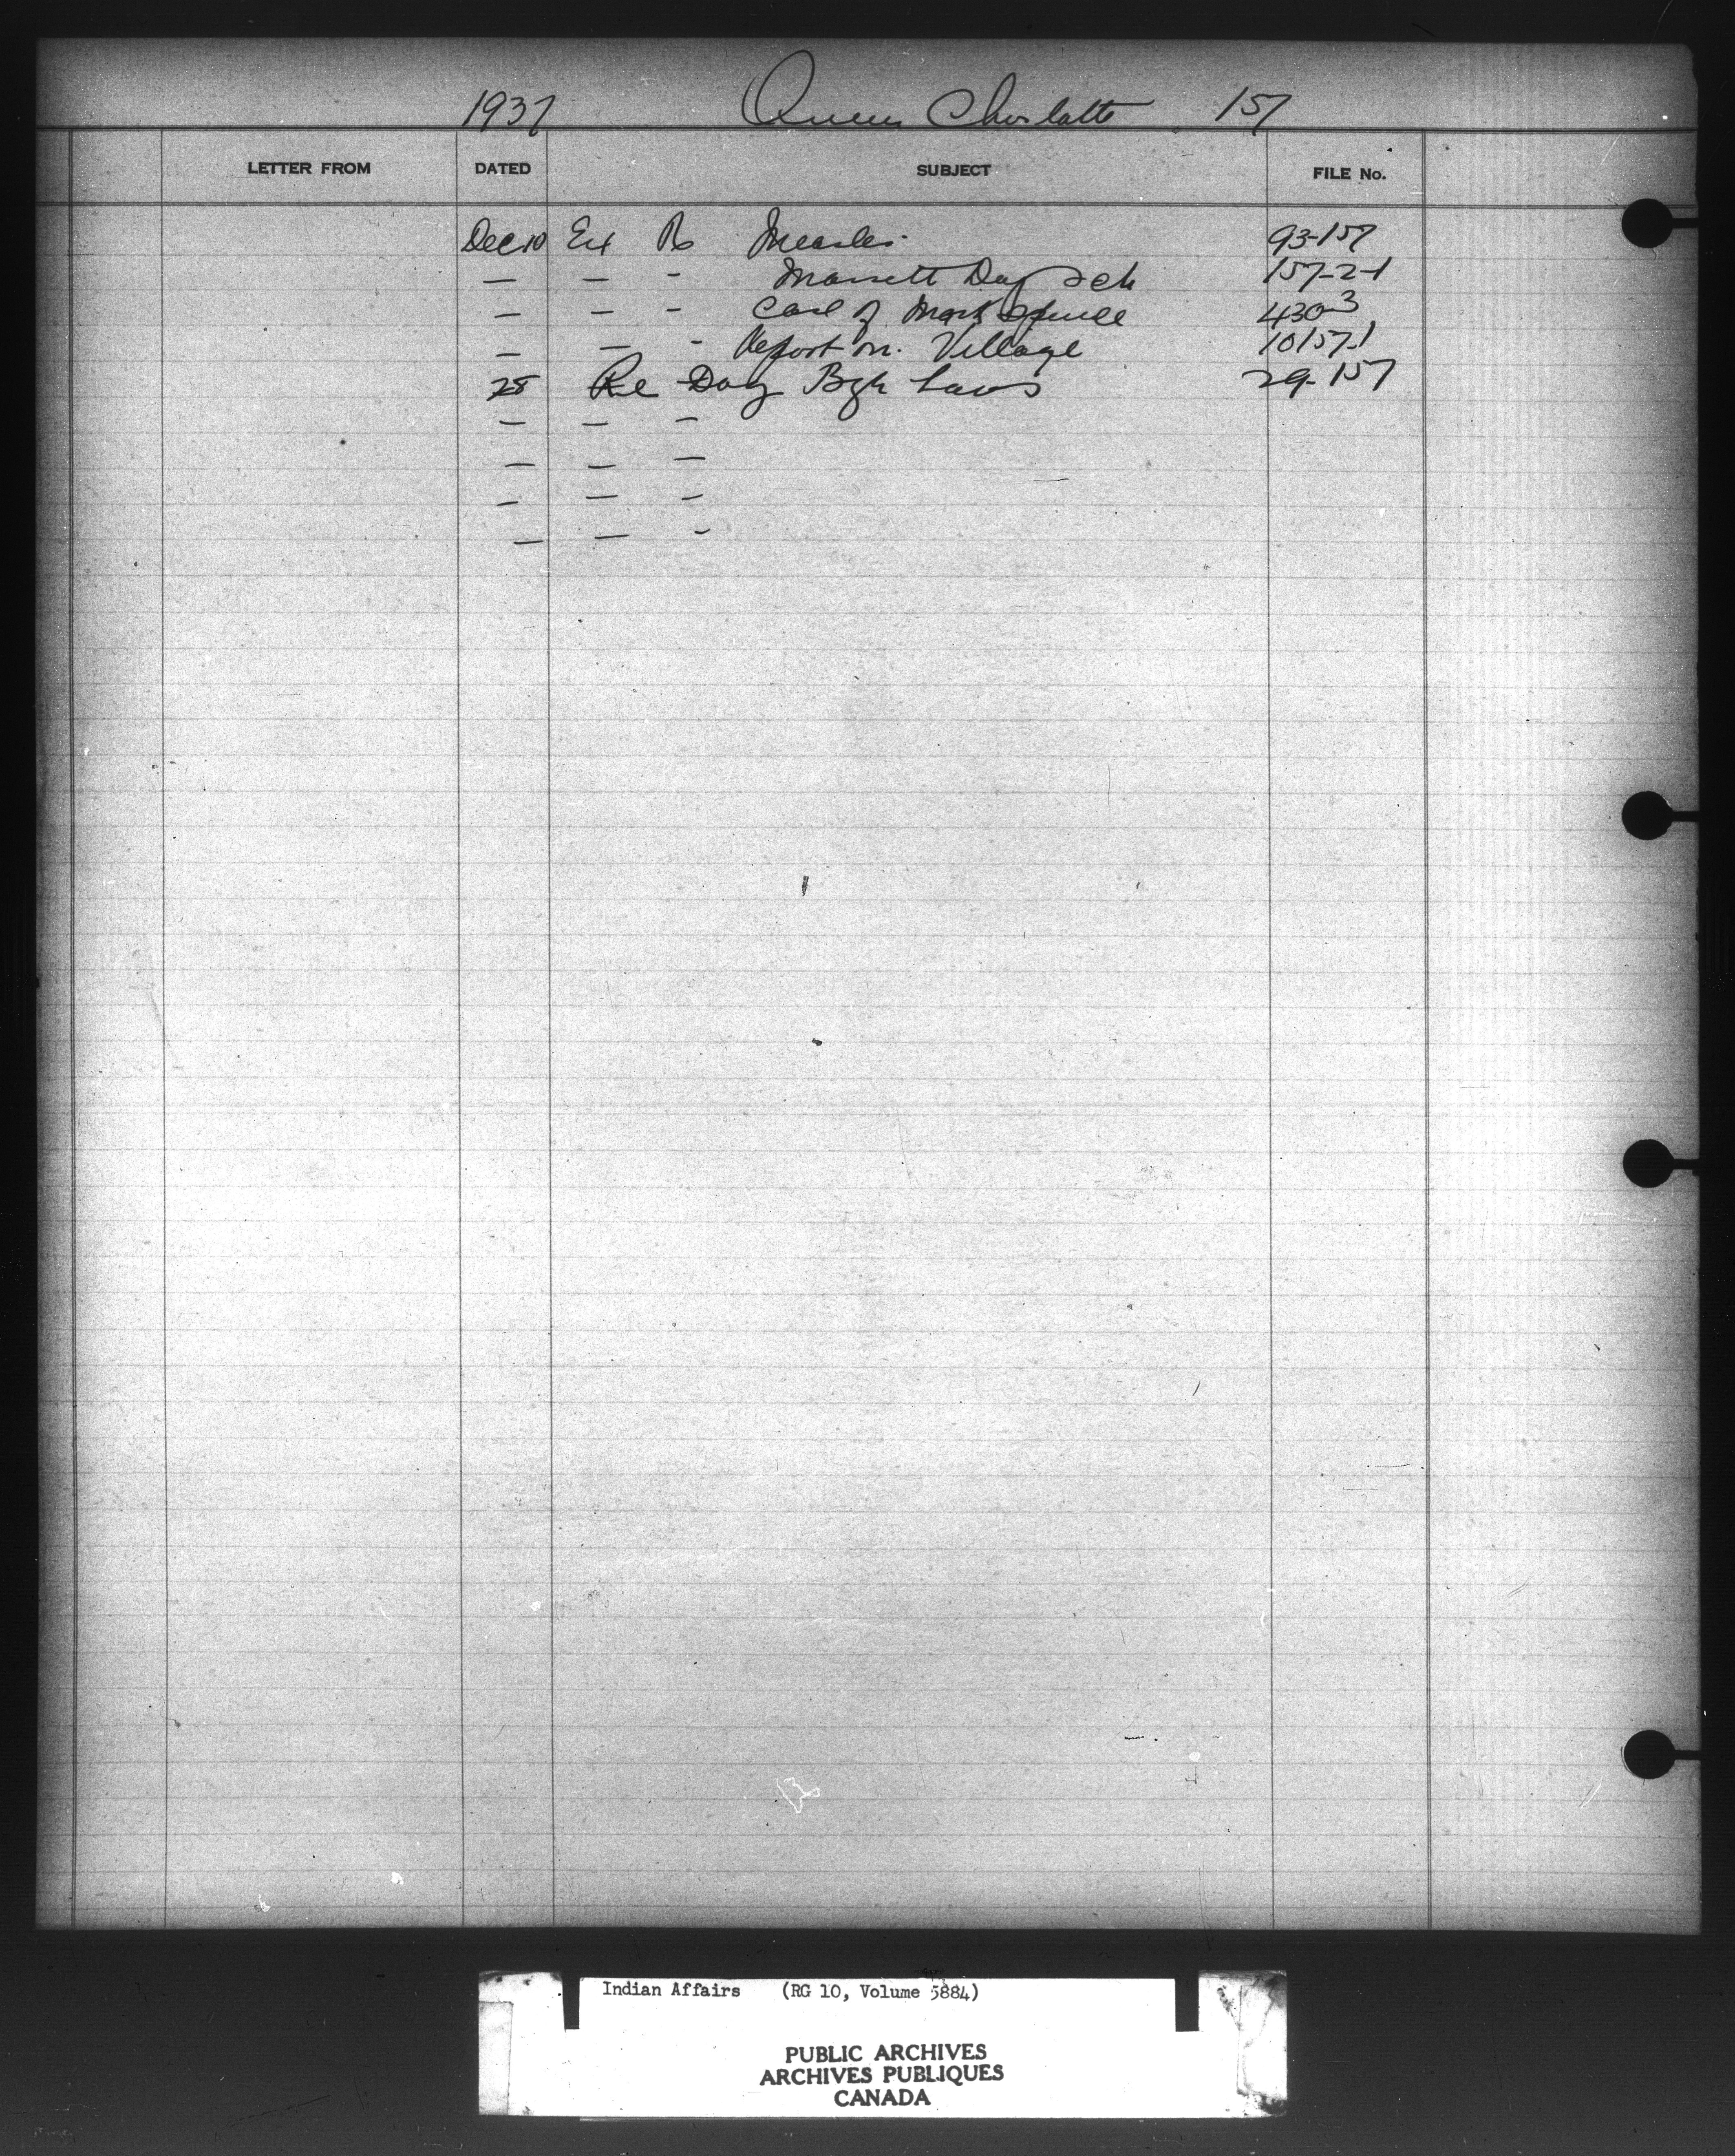 1937 Queen Charlotte 157
LETTER FROM DATED SUBJECT FILE No.
Dec 10 Ext R Measles 93-157
— — - Massett Day Sch 157-2-1
— — - Case of Mark Spence 430-3
— — - Report on Village 10157-1
28 Re Dog Bye Laws 29-157
— — -
— — —
- — -
— — -
Indian Affairs (RG 10, Volume 5884)
PUBLIC ARCHIVES
ARCHIVES PUBLIQUES
CANADA